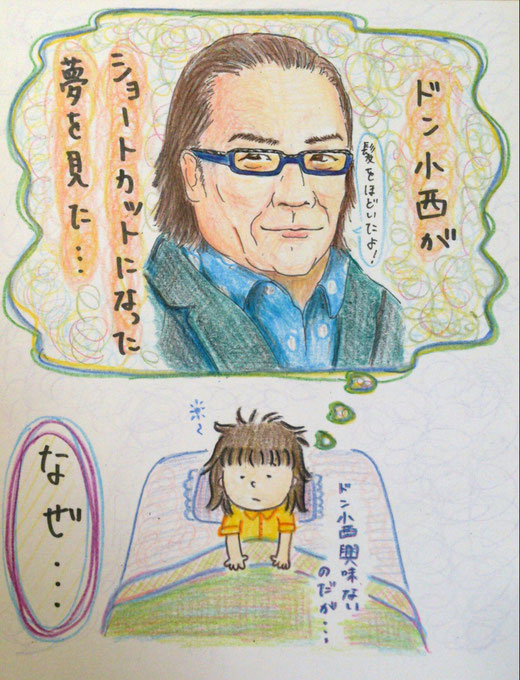 ドン小西が
ショートカットになった
夢を見た…
髪をほどいたよ!
ドン小西興味ない
のだが…
なぜ…